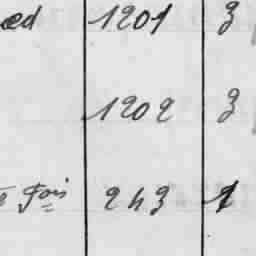 æd 1201 3
1202 3
Fois 243 1